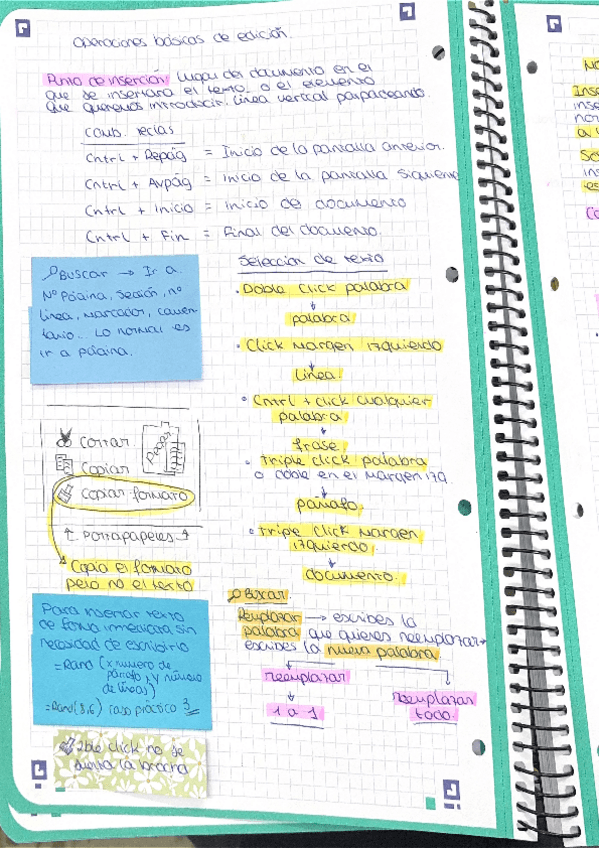 Operaciones básicas de edición.
Punto de inserción: Lugar del documento en el
que se insertará el texto o el elemento
que queremos introducir. Línea vertical parpadeando.
Comb. teclas
Cntrl + Repág = Inicio de la pantalla anterior.
Cntrl + Avpág = inicio de la pantalla siguiente
Cntrl + Inicio = inicio del documento
Cntrl + Fin = Final del documento.
Buscar → Ir a.
Nº Página, sección, nº
línea, marcador, comen
tario. Lo normal es
ir a página.
Cortar
Copiar
Copiar formato
Pegar
↑ Portapapeles ↑
Copia el formato
pero no el texto
Para insertar texto
de forma inmediata sin
necesidad de escribirlo
=Rand (x número de
párrafo, y número
de líneas)
=Rand(3,6) caso práctico 3
2ble click no se
quita la brocha
Selección de texto
· Doble click palabra
↓
palabra
· Click margen izquierdo
↓
Línea.
· Cntrl + click cualquier
palabra
↓
frase
· triple click palabra
o doble en el margen izq.
↓
párrafo.
· triple click margen
izquierdo.
↓
documento.
Buscar
Reemplazar → escribes la
palabra que quieres reemplazar →
escribes la nueva palabra.
reemplazar
↓
1 a 1
reemplazar
todo.